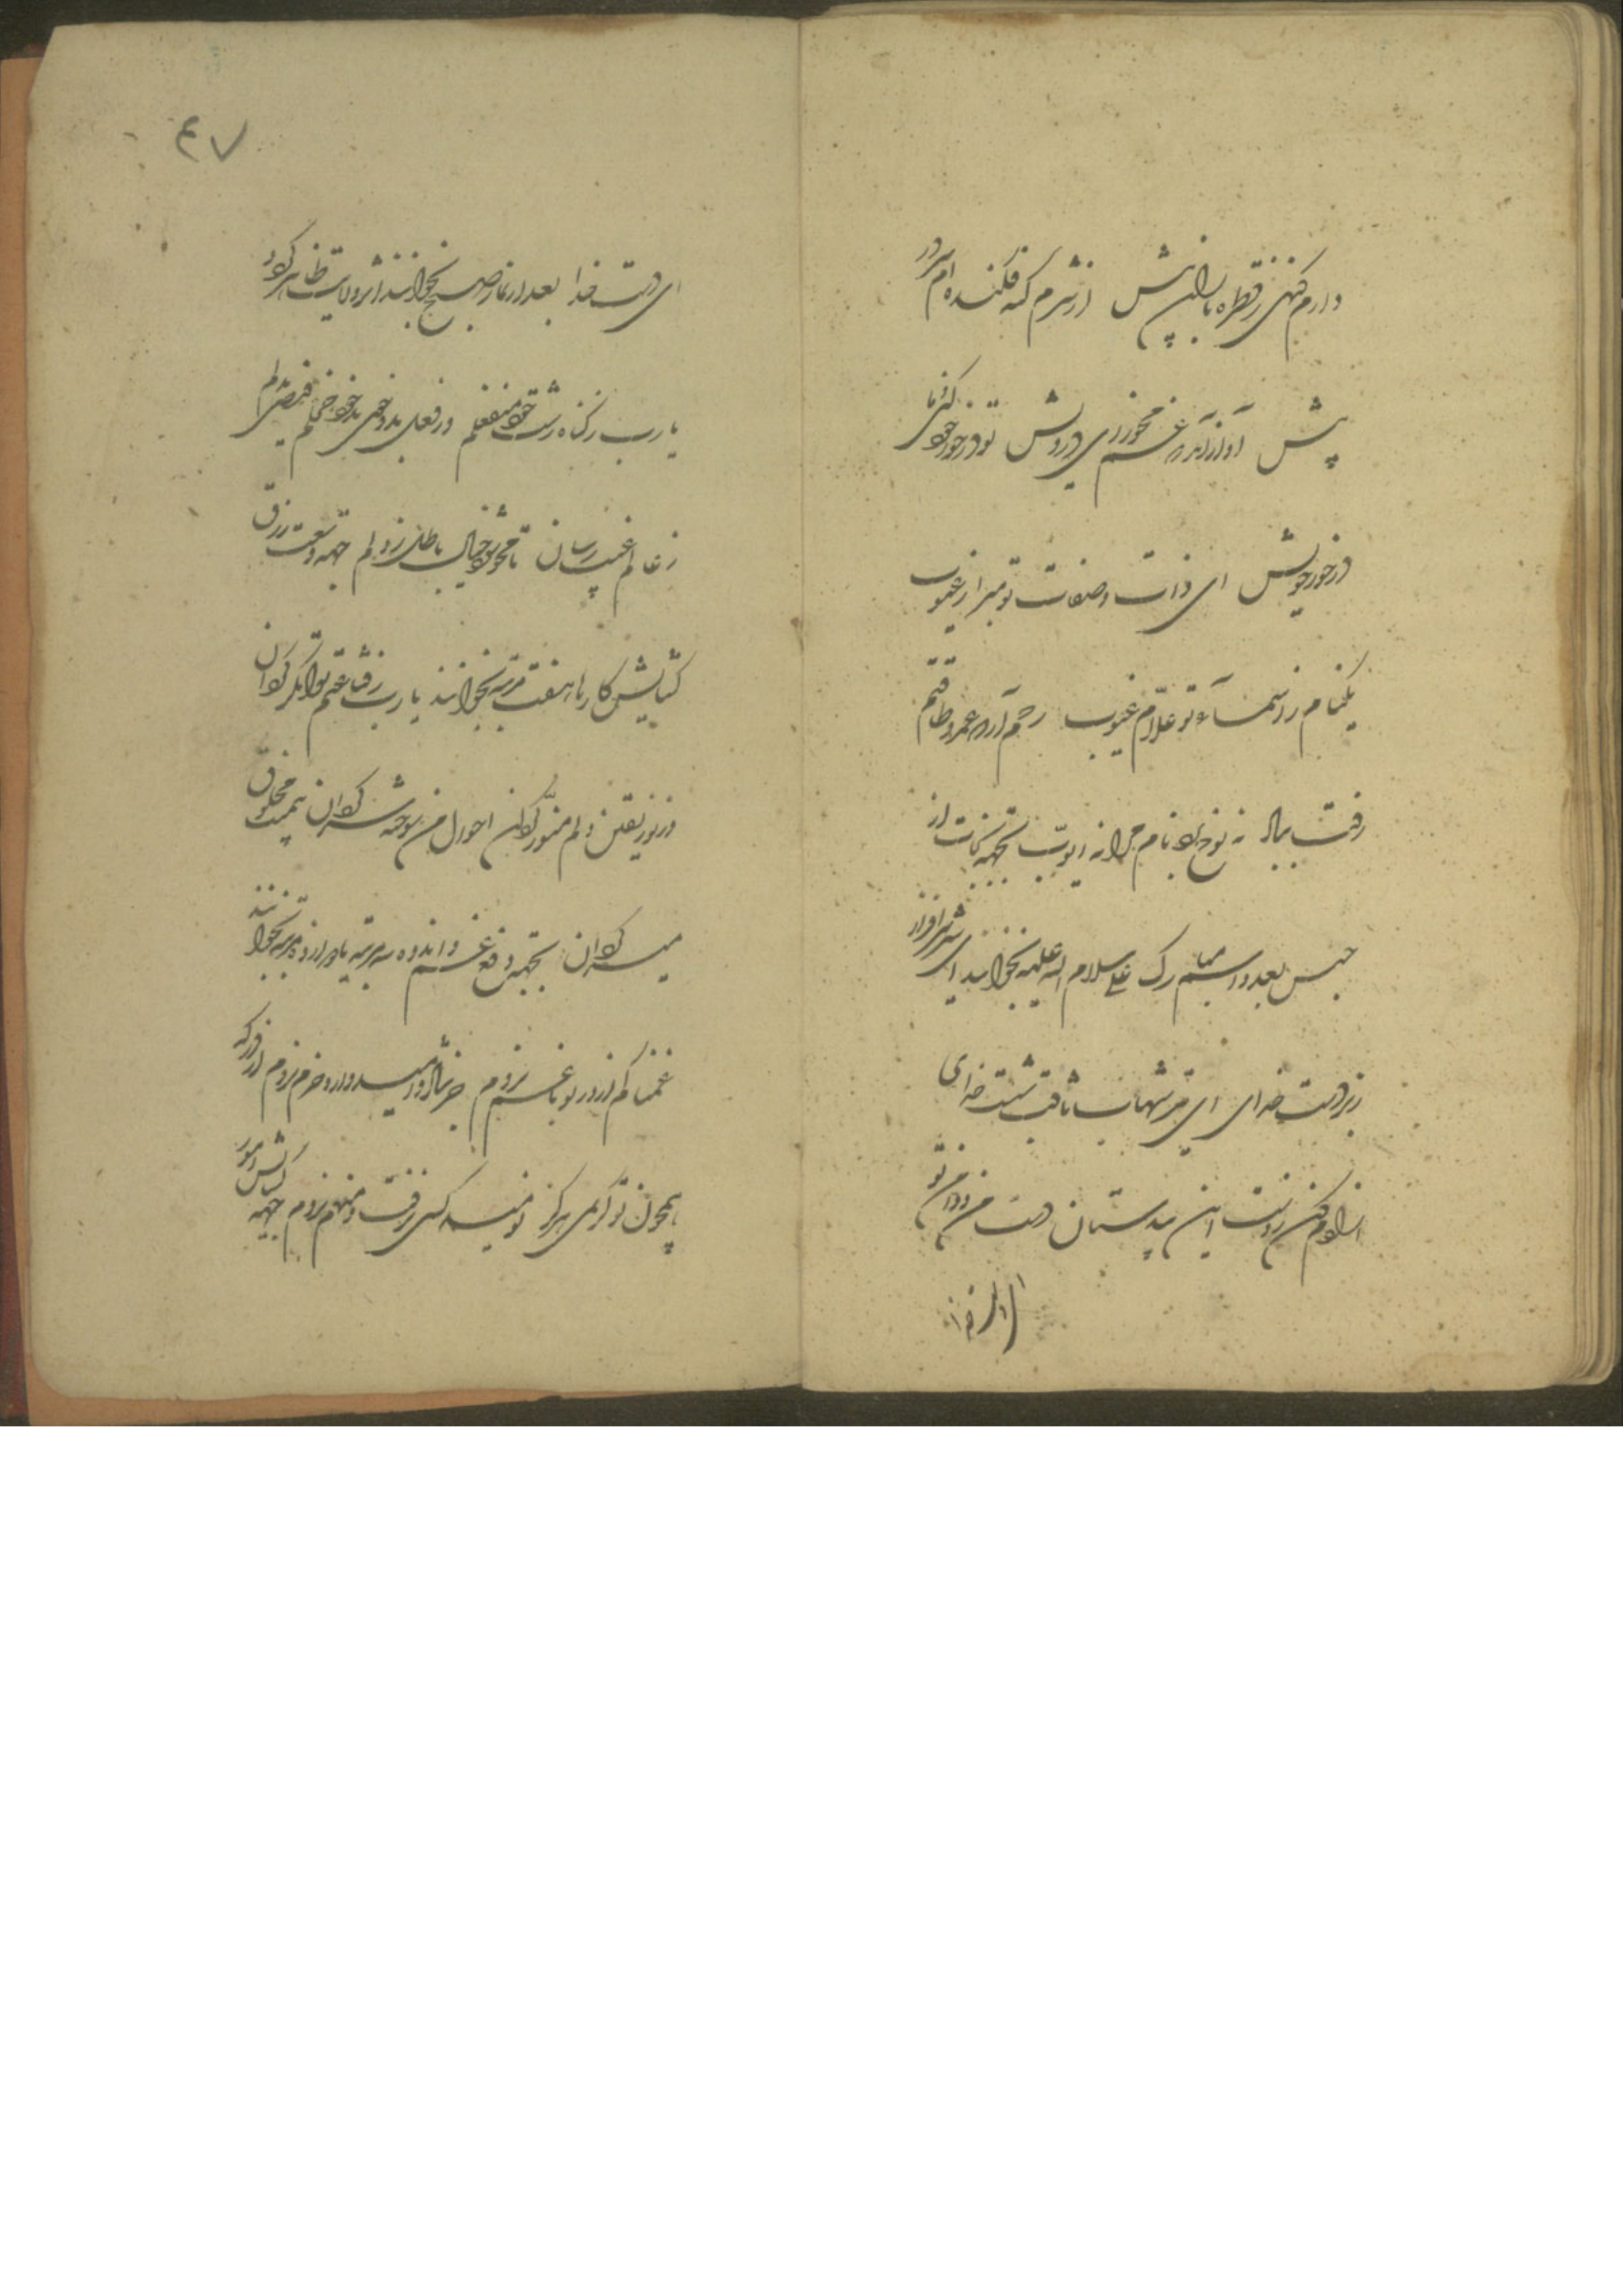 دارم گنهی ز قطره باران پیش از شرم گنه فکنده ام سر در
پیش آواز آمد که غم مخور ای درویش تو در خور خود کنی و ما
در خور خویش ای ذات و صفات تو مبرا ز عیوب
یکنام ز اسماء تو علام غیوب رحم آر که عمر و طاقتم
رفت بباد نه نوح بود نام مرا نه ایوب بجهة نجات از
حبس بعدد اسم مبارک علی سلام الله علیه بخوانند ای شیر سرافراز
زبردست خدای ای تیر شهاب ثاقب شست خدای
آزادم کن ز دست این بیدستان دست من و دامن تو
ای دست خدا
ای دست خدا بعد از نماز صبح بخوانند اثر ولایت ظاهر گردد
یا رب ز گناه زشت خود منفعلم وز فعل بد و خوی بد خود خجلم فیضی بدلم
ز عالم غیب رسان تا محو شود خیال باطل ز دلم جهة وسعت رزق
گشایش کارها هفت مرتبه بخوانند یا رب ز قناعتم توانگر گردان
وز نور یقین دلم منور گردان احوال من سوخته سرگردان بیمنت مخلوق
میسر گردان بجهة دفع غم و اندوه سه مرتبه یا دوازده مرتبه بخوانند
غمناکم و از در تو با غم نروم جز شاد و امیدوار و خرم نروم از درگه
همچون تو کریمی هرگز نومید کسی نرفت و منهم نروم جهة گشایش امور
۴۷